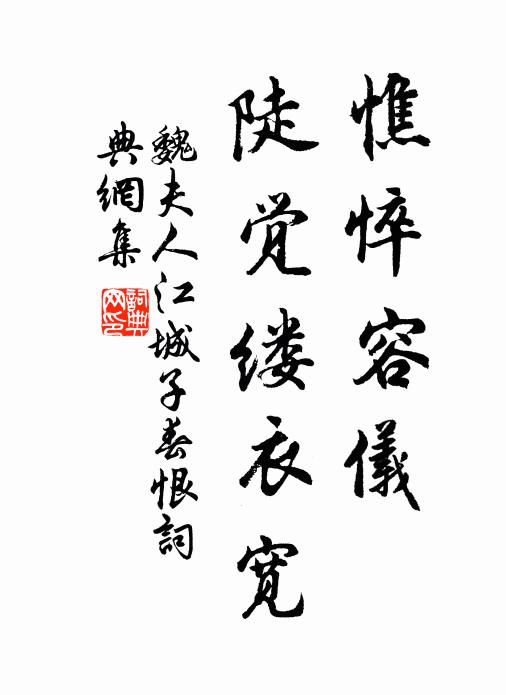 憔悴容儀
陡觉缕衣宽
魏夫人江城子春恨詞
典網集
詞典
网印